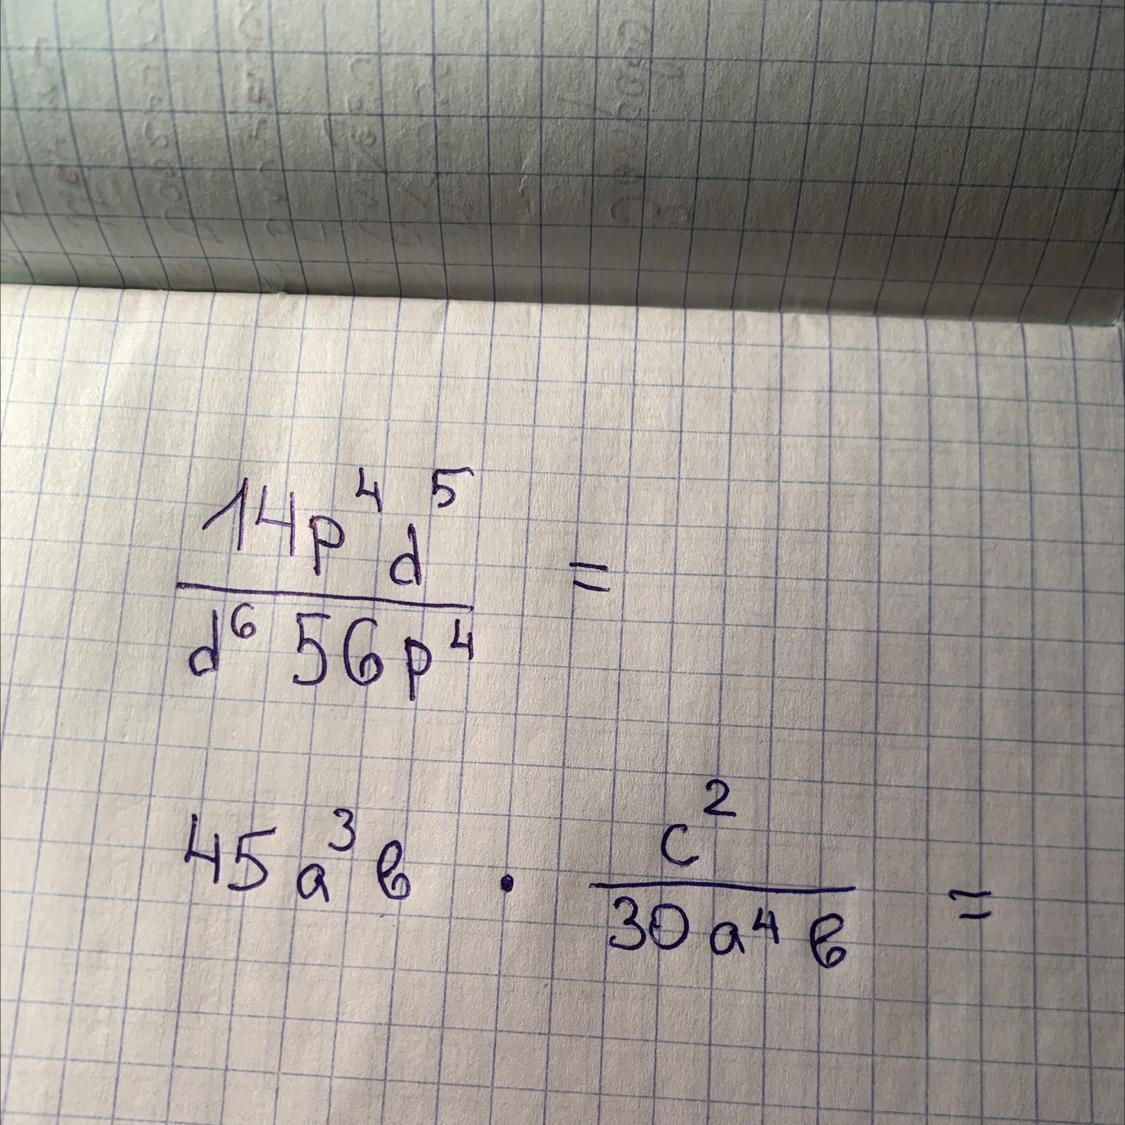 14p⁴d⁵
d⁶ 56p⁴ =
45a³в · c² / 30a⁴в =